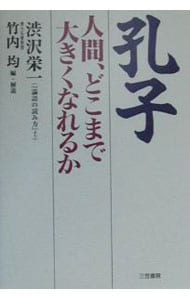 孔子
人間、どこまで
大きくなれるか
渋沢栄一
『「論語」の読み方』
竹内 均 編・解説
三笠書房